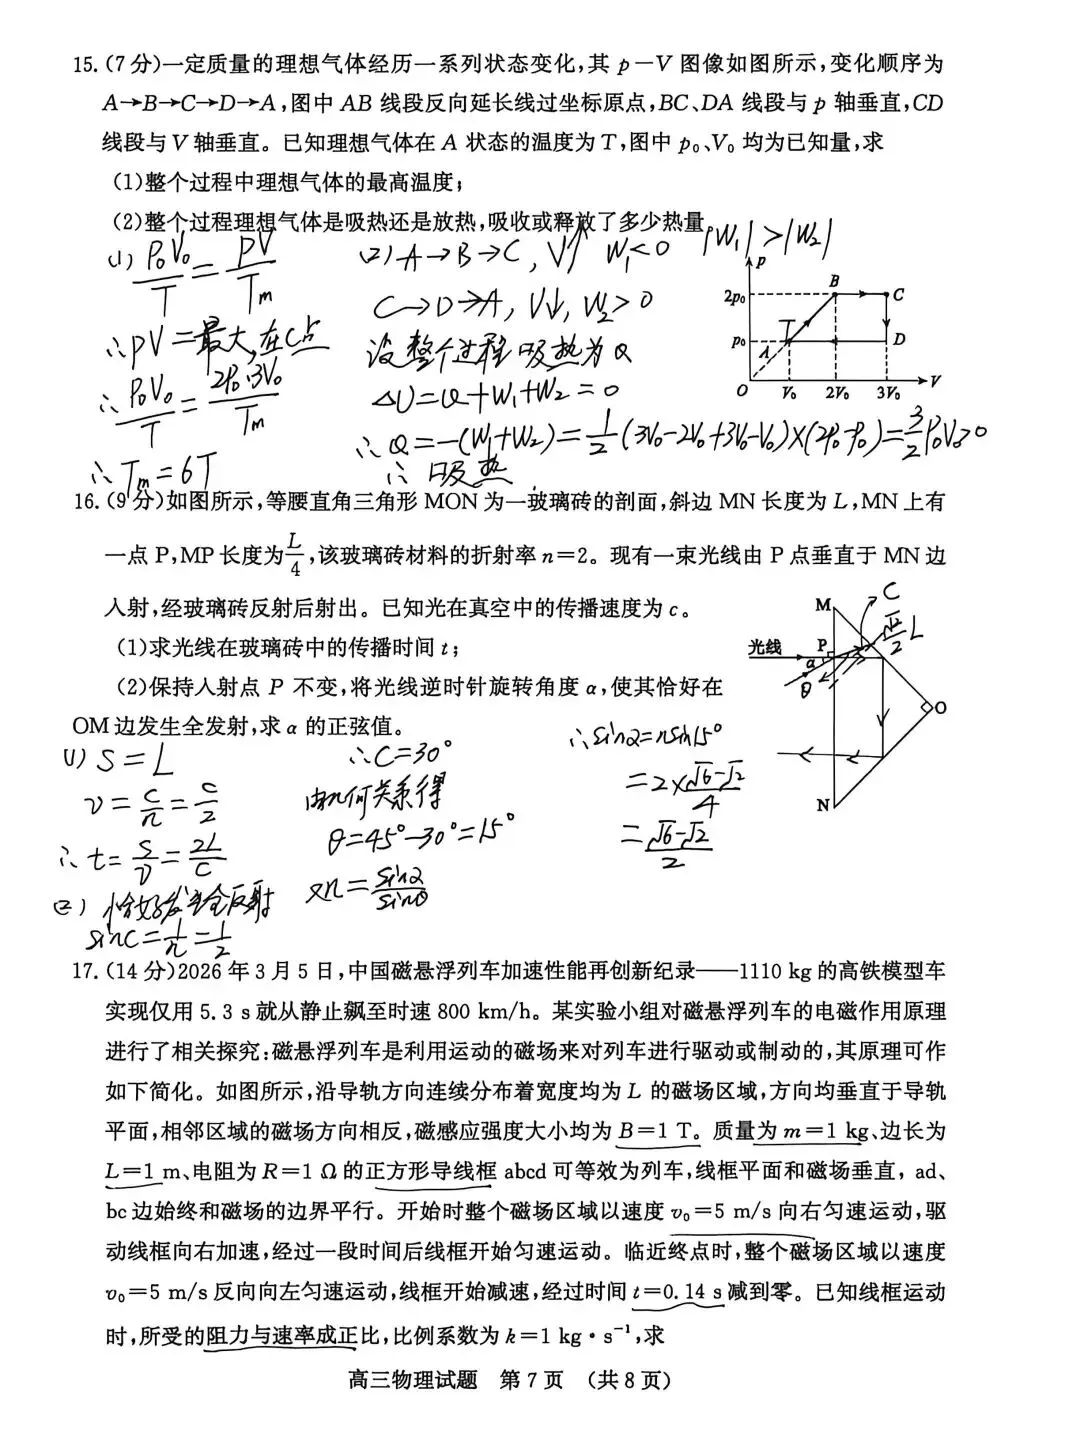 15.(7分)一定质量的理想气体经历一系列状态变化,其 p－V 图像如图所示,变化顺序为
A→B→C→D→A,图中 AB 线段反向延长线过坐标原点,BC、DA 线段与 p 轴垂直,CD
线段与 V 轴垂直。已知理想气体在 A 状态的温度为 T,图中 p₀、V₀ 均为已知量,求
(1)整个过程中理想气体的最高温度;
(2)整个过程理想气体是吸热还是放热,吸收或释放了多少热量
(1) P₀V₀/T = PV/Tm
∴PV=最大,在C点
∴ P₀V₀/T = 2P₀·3V₀/Tm
∴ Tm=6T
(2)A→B→C, V↑ W₁<0 |W₁|>|W₂|
C→D→A, V↓, W₂>0
设整个过程吸热为Q
ΔU=Q+W₁+W₂=0
∴Q=-(W₁+W₂)=1/2(3V₀-2V₀+3V₀-V₀)×(2P₀-P₀)=3/2P₀V₀>0
∴吸热
p
2p₀
p₀
O
V₀
2V₀
3V₀
V
A
T
B
C
D
16.(9分)如图所示,等腰直角三角形 MON 为一玻璃砖的剖面,斜边 MN 长度为 L,MN 上有
一点 P,MP 长度为L/4,该玻璃砖材料的折射率 n=2。现有一束光线由 P 点垂直于 MN 边
入射,经玻璃砖反射后射出。已知光在真空中的传播速度为 c。
(1)求光线在玻璃砖中的传播时间 t;
(2)保持入射点 P 不变,将光线逆时针旋转角度 α,使其恰好在
OM 边发生全发射,求 α 的正弦值。
M
光线
P
α
θ
C
√2/2 L
O
N
(1) S=L
v=c/n=c/2
∴t=S/v=2L/c
(2) 恰好发生全反射
sinC=1/n=1/2
∴C=30°
由几何关系得
θ=45°-30°=15°
又n=sinα/sinθ
∴sinα=nsin15°
=2×(√6-√2)/4
=(√6-√2)/2
17.(14分)2026 年 3 月 5 日,中国磁悬浮列车加速性能再创新纪录——1110 kg 的高铁模型车
实现仅用 5.3 s 就从静止飙至时速 800 km/h。某实验小组对磁悬浮列车的电磁作用原理
进行了相关探究:磁悬浮列车是利用运动的磁场来对列车进行驱动或制动的,其原理可作
如下简化。如图所示,沿导轨方向连续分布着宽度均为 L 的磁场区域,方向均垂直于导轨
平面,相邻区域的磁场方向相反,磁感应强度大小均为 B=1 T。质量为 m=1 kg、边长为
L=1 m、电阻为 R=1 Ω 的正方形导线框 abcd 可等效为列车,线框平面和磁场垂直, ad、
bc 边始终和磁场的边界平行。开始时整个磁场区域以速度 v₀=5 m/s 向右匀速运动,驱
动线框向右加速,经过一段时间后线框开始匀速运动。临近终点时,整个磁场区域以速度
v₀=5 m/s 反向向左匀速运动,线框开始减速,经过时间 t=0.14 s 减到零。已知线框运动
时,所受的阻力与速率成正比,比例系数为 k=1 kg·s⁻¹,求
高三物理试题 第 7 页 (共 8 页)